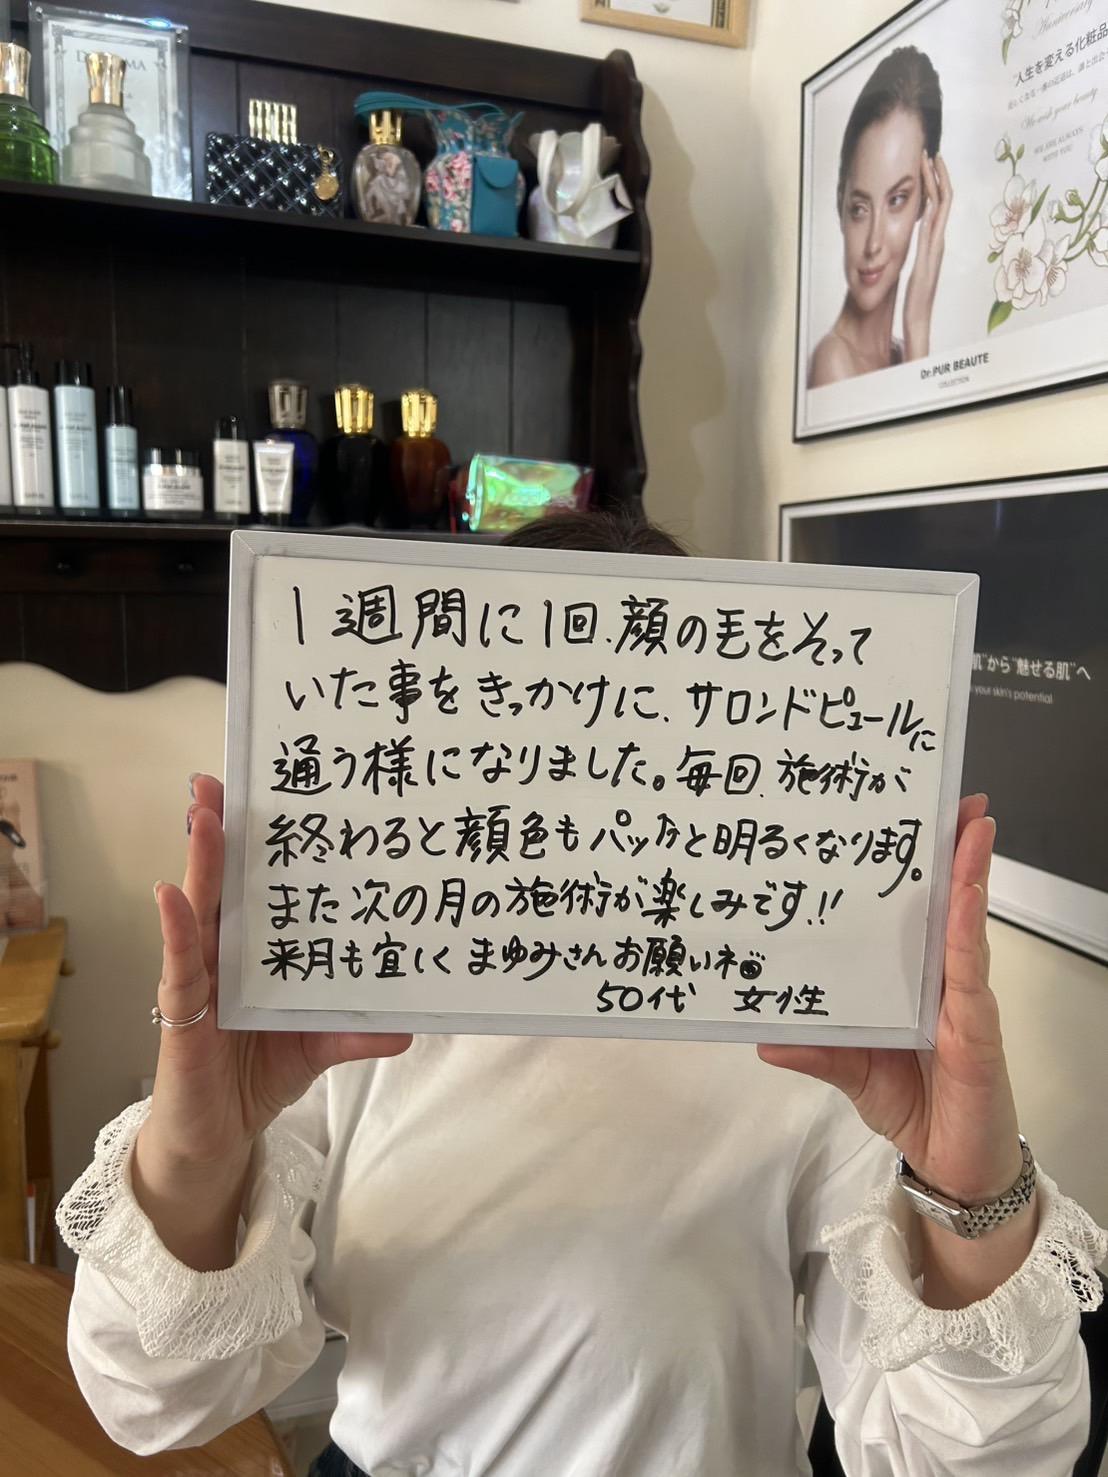 "人生を変える化粧品
We wish your beauty
WE ARE ALWAYS
WITH YOU
Dr.PUR BEAUTE
COLLECTION
肌"から"魅せる肌"へ
your skin's potential
1週間に1回、顔の毛をそって
いた事をきっかけに、サロンドピュールに
通う様になりました。毎回、施術が
終わると顔色もパッカと明るくなります。
また次の月の施術が楽しみです!!
来月も宜しくまゆみさんお願いネ
50代 女性